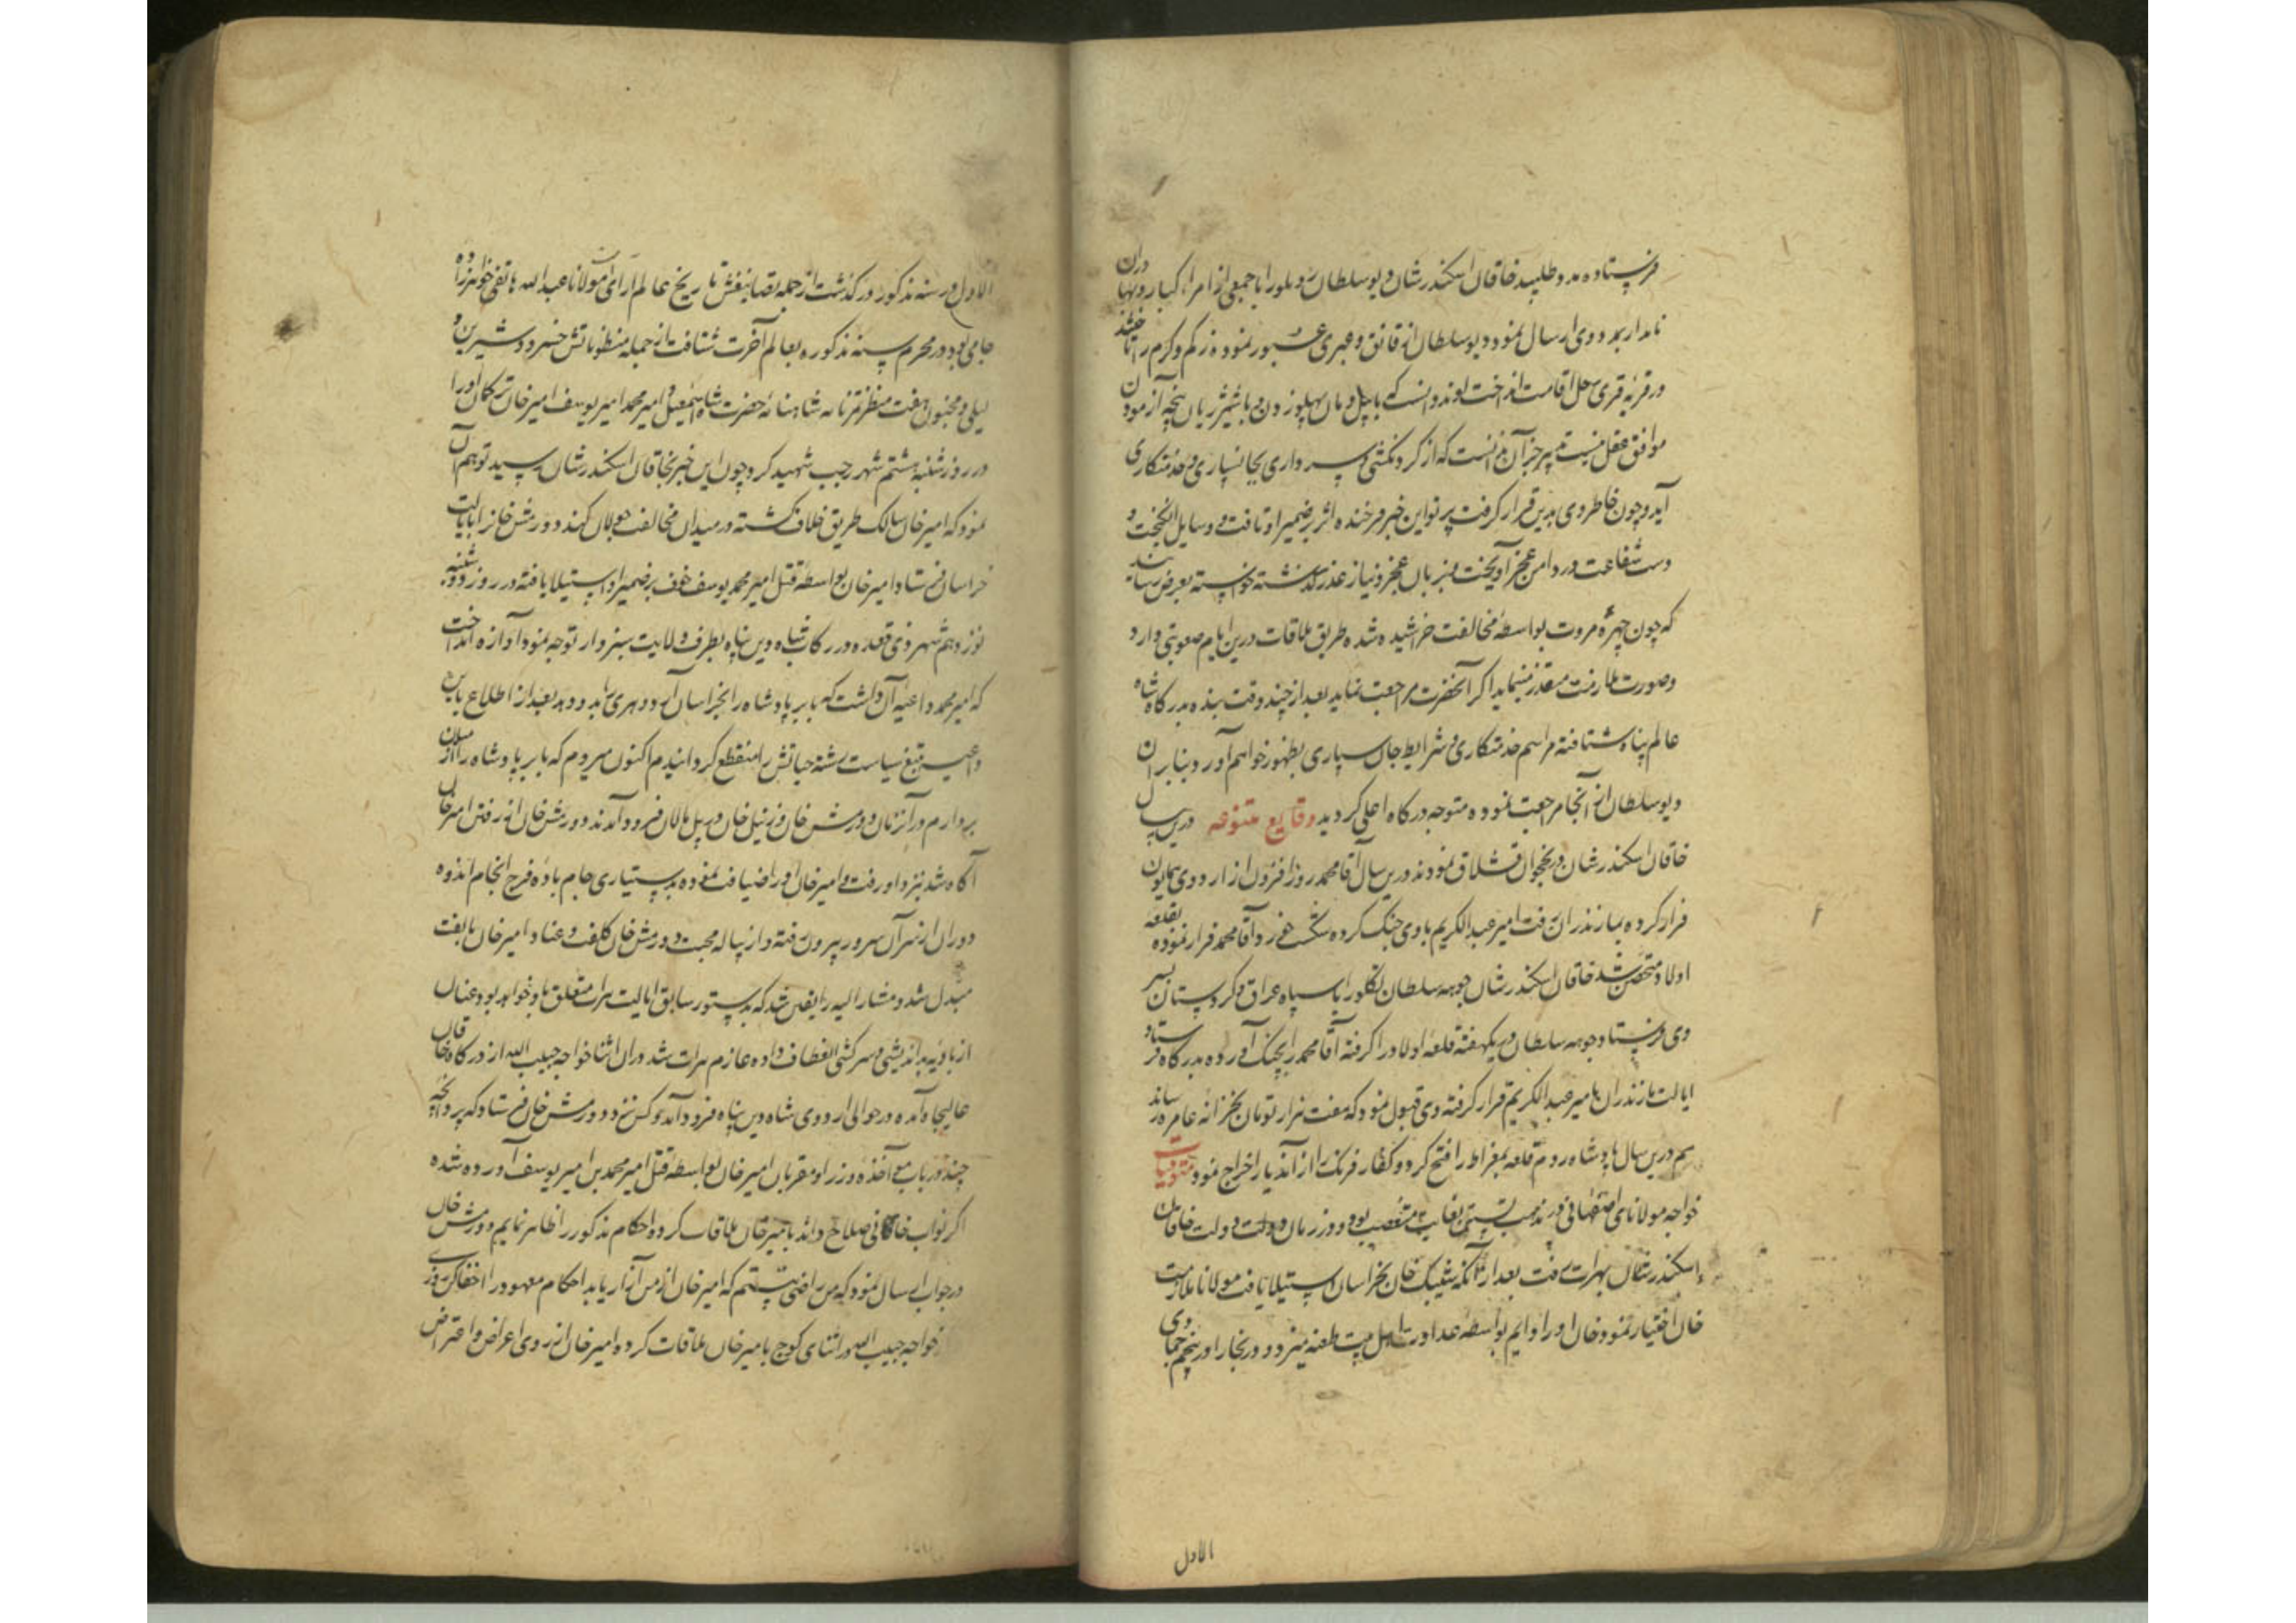 فرستاده مدد طلبید خاقان اسکندرشان دیو سلطان روملو را با جمعی از امراء کبار و بهادران
نامدار بمدد وی ارسال نمود دیو سلطان از قانق و عبری عبور نموده زکم و کرم را تاخته
در قریه قری رحل اقامت انداخت لوند دانست که با پیل دمان پهلو زدن و با شیر ژیان پنجه آزمودن
موافق عقل نیست تدبیر جز آن ندانست که از گردنکشی و سرداری بجانسپاری و خدمتکاری
آید و چون خاطر وی بدین قرار گرفت پرتو این خبر فرخنده اثر بر ضمیر او تافت و وسایل انگیخت و
دست شفاعت در دامن عجز آویخت و بزبان عجز و نیاز عذر گذشته خواسته بعرض رسانید
که چون چهره مروت بواسطه مخالفت خراشیده شده طریق ملاقات درین ایام صعوبتی دارد
و صورت ملازمت متعذر مینماید اگر آنحضرت مراجعت نماید بعد از چند وقت بنده بدرگاه شاه
عالم پناه شتافته مراسم خدمتکاری و شرایط جان سپاری بظهور خواهم آورد بنابر ان
دیو سلطان از آنجا مراجعت نموده متوجه درگاه اعلی گردید وقایع متنوعه درین سال
خاقان اسکندرشان در نخجوان قشلاق نمودند درین سال آقا محمد روز افزون از اردوی همایون
فرار کرده بمازندران رفت امیر عبدالکریم با وی جنگ کرده شکست خورد آقا محمد فرار نموده بقلعه
اولاد متحصن شد خاقان اسکندرشان جوهه سلطان تکلو را با سپاه عراق و کردستان بسر
وی فرستاد جوهه سلطان در یکهفته قلعه اولاد را گرفته آقا محمد را بچنگ آورده بدرگاه فرستاد
ایالت مازندران بامیر عبدالکریم قرار گرفته وی قبول نمود که هفت هزار تومان بخزانه عامره رساند
هم درین سال پادشاه روم قلعه بمغراط را فتح کرد و کفار فرنگ را از آن دیار اخراج نمود متوفیات
خواجه مولانای اصفهانی در مذهب تسنن بغایت متعصب بود و در زمان دولت خاقان
اسکندرشان بهرات رفت بعد از آنکه شیبک خان بخراسان استیلا یافت مولانا ملازمت
خان اختیار نمود و خان او را دایم بواسطه عداوت اهل بیت طعنه میزد و در بخارا در پنجم جمادی
الاول
الاول در سنه مذکور در گذشت از جمله تصانیفش تاریخ عالم آرای مولانا عبدالله هاتفی خواهرزاده
جامی بود در محرم سنه مذکوره بعالم آخرت شتافت از جمله منظوماتش خسرو و شیرین و
لیلی و مجنون هفت منظر تمرنامه شاهنامه حضرت شاه اسمعیل و امیر محمد امیر یوسف امیر خان ترکمان او را
در روز شنبه هشتم شهر رجب شهید کرد چون این خبر بخاقان اسکندرشان رسید توهم آن
نمود که امیر خان سالک طریق خلاف گشته در میدان مخالفت جولان کند دورمش خان را بایالت
خراسان فرستاد امیر خان بواسطه قتل امیر محمد یوسف خوف بر ضمیر او استیلا یافته در روز دوشنبه
نوزدهم شهر ذی قعده در رکاب شاه دین پناه بطرف ولایت سبزوار توجه نمود آوازه انداخت
که امیر محمد داعیه آن داشت که بابر پادشاه را بخراسان آورد و هری را بدو دهد بعد از اطلاع باین
داعیه بتیغ سیاست رشته حیاتش را منقطع گردانیدم اکنون میروم که بابر پادشاه را از میان
بردارم در آن زمان دورمش خان و زینل خان در پل مالان فرود آمدند دورمش خان از رفتن امیر خان
آگاه شد نزد او رفت و امیر خان او را ضیافت نموده بدستیاری جام باده فرح انجام اندوه
دوران از سر آن سرور بیرون رفته و از پیاله محبت دورمش خان کلفت و عناد امیر خان بالفت
مبدل شد و مشارالیه را یقین شد که بدستور سابق ایالت هرات متعلق باو خواهد بود و عنان
از بادیه بد اندیشی و سرکشی انعطاف داده عازم هرات شد در ان اثنا خواجه حبیب الله از درگاه خاقان
عالیجاه آمده در حوالی اردوی شاه دین پناه فرود آمد و کس نزد دورمش خان فرستاد که پروانجه
چند در باب مؤاخذه وزرا و مقربان امیر خان بواسطه قتل امیر محمد بن امیر یوسف آورده شده
اگر نواب خاقانی صلاح داند با امیر خان ملاقات کرده احکام مذکور را ظاهر نمایم دورمش خان
در جواب ارسال نمود که من راضی نیستم که امیر خان از من آزار یابد احکام معهود را اخفا کن روزی
خواجه حبیب الله در اثنای کوچ با امیر خان ملاقات کرده امیر خان از روی اعراض و اعتراض